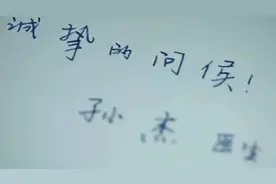 诚挚的问候！
孙小杰 医生